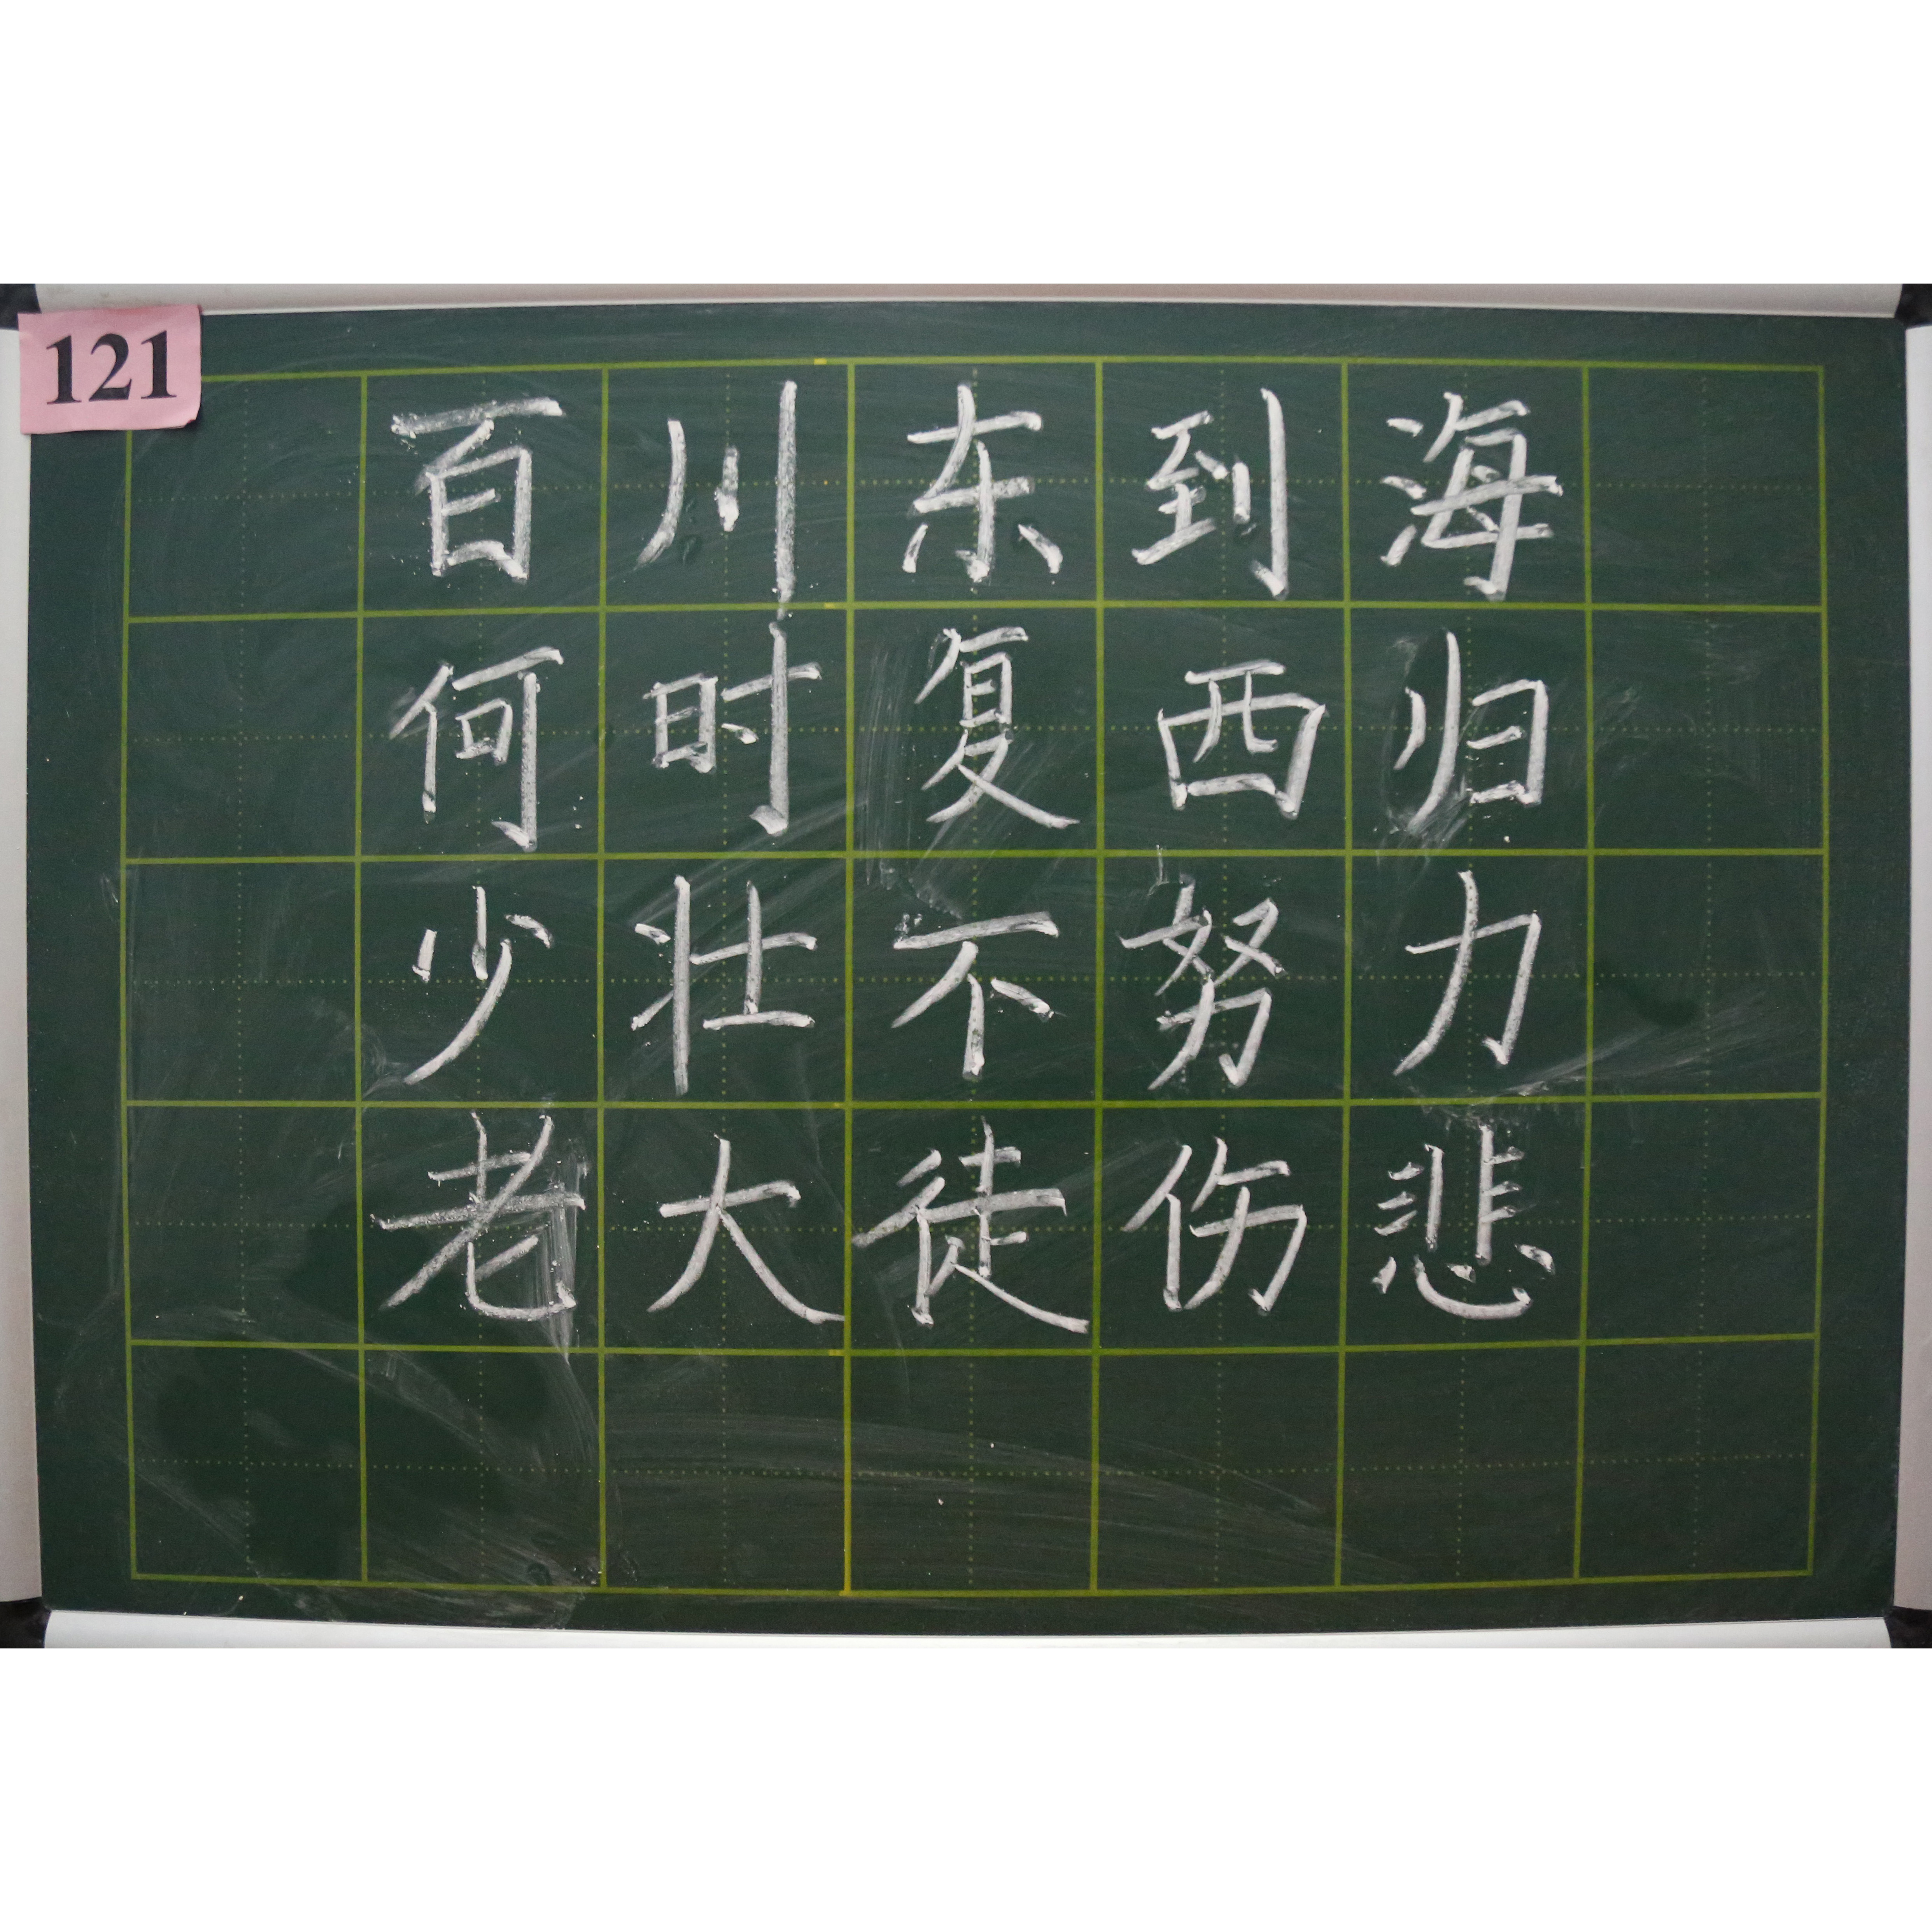 121
百川东到海
何时复西归
少壮不努力
老大徒伤悲